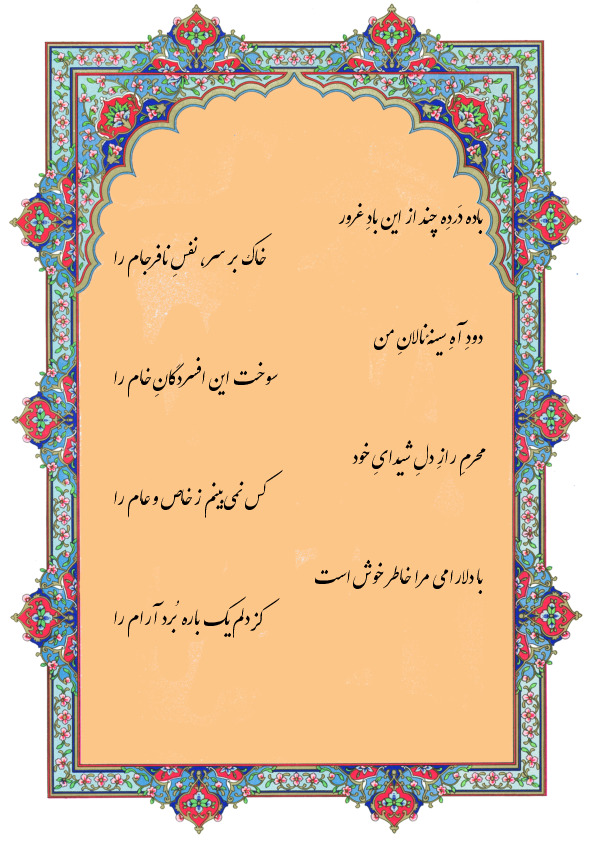 باده دَردِه چند از این بادِ غرور
خاک بر سر، نفسِ نافرجام را
دودِ آهِ سینهٔ نالانِ من
سوخت این افسردگانِ خام را
محرمِ رازِ دلِ شیدایِ خود
کس نمی‌بینم ز خاص و عام را
با دلارامی مرا خاطر خوش است
کز دلم یک باره بُرد آرام را